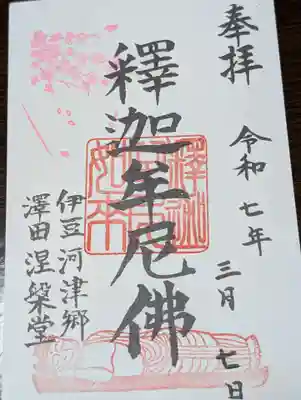 奉拝
令和七年
三月七日
釋迦牟尼佛
釋迦如来
伊豆河津郷
澤田涅槃堂